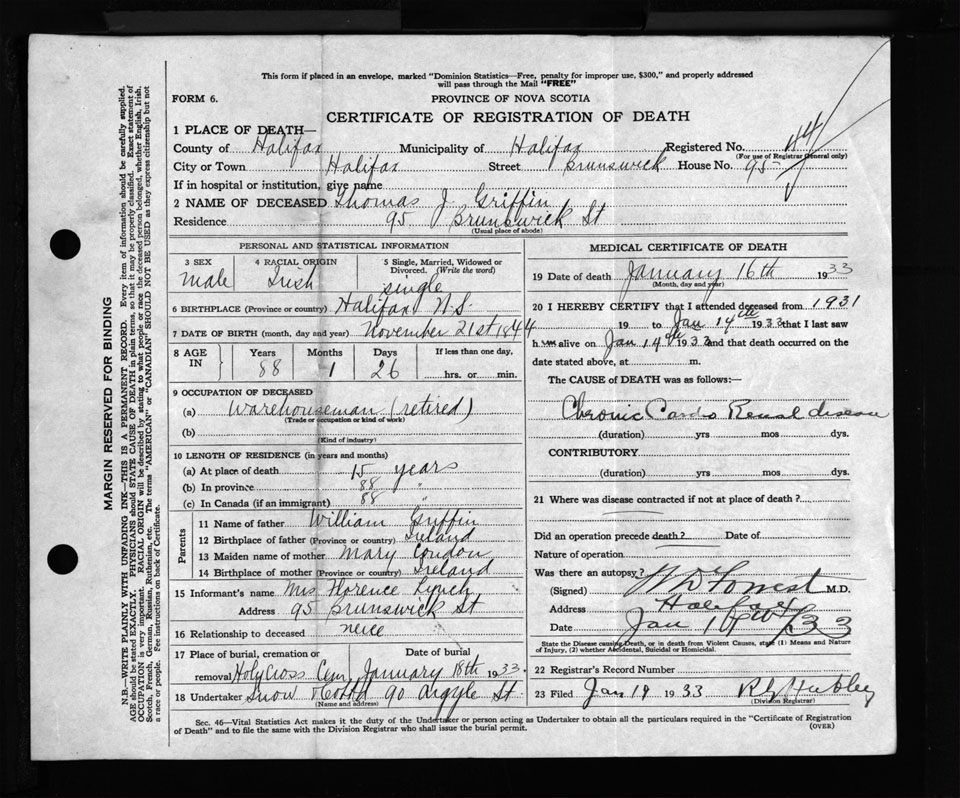 This form if placed in an envelope, marked "Dominion Statistics—Free, penalty for improper use, $300," and properly addressed
will pass through the Mail "FREE"
FORM 6.
PROVINCE OF NOVA SCOTIA
CERTIFICATE OF REGISTRATION OF DEATH
1 PLACE OF DEATH—
County of Halifax Municipality of Halifax Registered No. 44
(For use of Registrar General only)
City or Town Halifax Street Brunswick House No. 95
If in hospital or institution, give name
2 NAME OF DECEASED Thomas J. Griffin
Residence 95 Brunswick St
(Usual place of abode)
PERSONAL AND STATISTICAL INFORMATION
3 SEX 4 RACIAL ORIGIN 5 Single, Married, Widowed or
Divorced. (Write the word)
male Irish single
6 BIRTHPLACE (Province or country) Halifax N.S.
7 DATE OF BIRTH (month, day and year) November 21st 1844
8 AGE IN Years Months Days If less than one day,
88 1 26 hrs. or min.
9 OCCUPATION OF DECEASED
(a) Warehouseman (retired)
(Trade or occupation or kind of work)
(b)
(Kind of industry)
10 LENGTH OF RESIDENCE (in years and months)
(a) At place of death 15 years
(b) In province 88 "
(c) In Canada (if an immigrant) 88 "
Parents
11 Name of father William Griffin
12 Birthplace of father (Province or country) Ireland
13 Maiden name of mother Mary Condon
14 Birthplace of mother (Province or country) Ireland
15 Informant's name Mrs Florence Lynch
Address 95 Brunswick St
16 Relationship to deceased neice
17 Place of burial, cremation or Date of burial
removal Holy Cross Cem January 18th 1933
18 Undertaker Snow & Co Ltd 90 Argyle St
(Name and address)
MEDICAL CERTIFICATE OF DEATH
19 Date of death January 16th 1933
(Month, day and year)
20 I HEREBY CERTIFY that I attended deceased from 1931
19 to Jan 14th 1933 that I last saw
h im alive on Jan 14th 1933 and that death occurred on the
date stated above, at m.
The CAUSE of DEATH was as follows:—
Chronic Cardio Renal disease
(duration) yrs mos dys.
CONTRIBUTORY
(duration) yrs mos dys.
21 Where was disease contracted if not at place of death?
Did an operation precede death? Date of
Nature of operation
Was there an autopsy?
(Signed) M.D.
Address Halifax
Date Jan 33
State the Disease causing Death, or in death from Violent Causes, state (1) Means and Nature
of Injury, (2) whether Accidental, Suicidal or Homicidal.
22 Registrar's Record Number
23 Filed Jan 19 1933 Hubley
(Division Registrar)
Sec. 46—Vital Statistics Act makes it the duty of the Undertaker or person acting as Undertaker to obtain all the particulars required in the "Certificate of Registration
of Death" and to file the same with the Division Registrar who shall issue the burial permit.
(OVER)
MARGIN RESERVED FOR BINDING
N.B.—WRITE PLAINLY WITH UNFADING INK—THIS IS A PERMANENT RECORD. Every item of information should be carefully supplied.
AGE should be stated EXACTLY. PHYSICIANS should STATE CAUSE OF DEATH in plain terms, so that it may be properly classified. Exact statement of
OCCUPATION is very important. RACIAL ORIGIN will be described by stating to what people or race the deceased person belonged, whether English, Irish,
Scotch, French, German, Russian, Ruthenian, etc. The terms "AMERICAN" or "CANADIAN" SHOULD NOT BE USED as they express citizenship but not
a race or people. See instructions on back of Certificate.